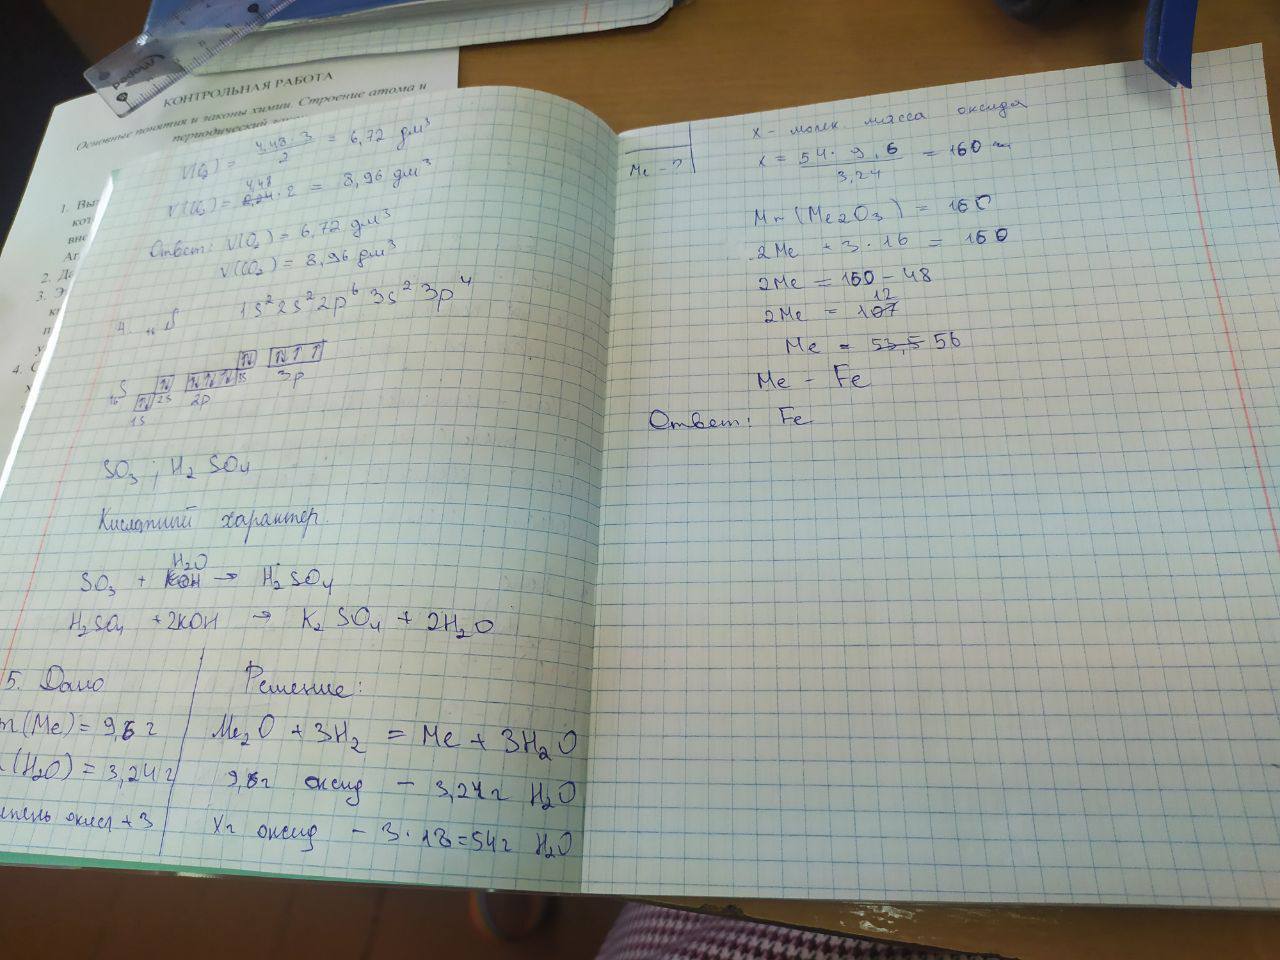 КОНТРОЛЬНАЯ РАБОТА
Основные понятия и законы химии. Строение атома и
периодический
1. Вы
2. Да
3. Э
4. С
V(O₂) = 4,48 · 3 / 2 = 6,72 дм³
V(CO₂) = 4,48 · 2 = 8,96 дм³
Ответ: V(O₂) = 6,72 дм³
V(CO₂) = 8,96 дм³
4. ₁₆S 1s² 2s² 2p⁶ 3s² 3p⁴
₁₆S
1s 2s 2p 3s 3p
SO₃ ; H₂SO₄
Кислотный характер.
SO₃ + H₂O → H₂SO₄
H₂SO₄ + 2KOH → K₂SO₄ + 2H₂O
5. Дано
Решение:
m(Me) = 9,6 г
(H₂O) = 3,24 г
окисл +3
Me₂O + 3H₂ = Me + 3H₂O
9,6г оксид – 3,24г H₂O
Xг оксид – 3·18=54г H₂O
Me – ?
X – молек. масса оксида
X = 54 · 9,6 / 3,24 = 160
Mr(Me₂O₃) = 160
2Me + 3·16 = 160
2Me = 160 – 48
2Me = 112
Me = 56
Me – Fe
Ответ: Fe